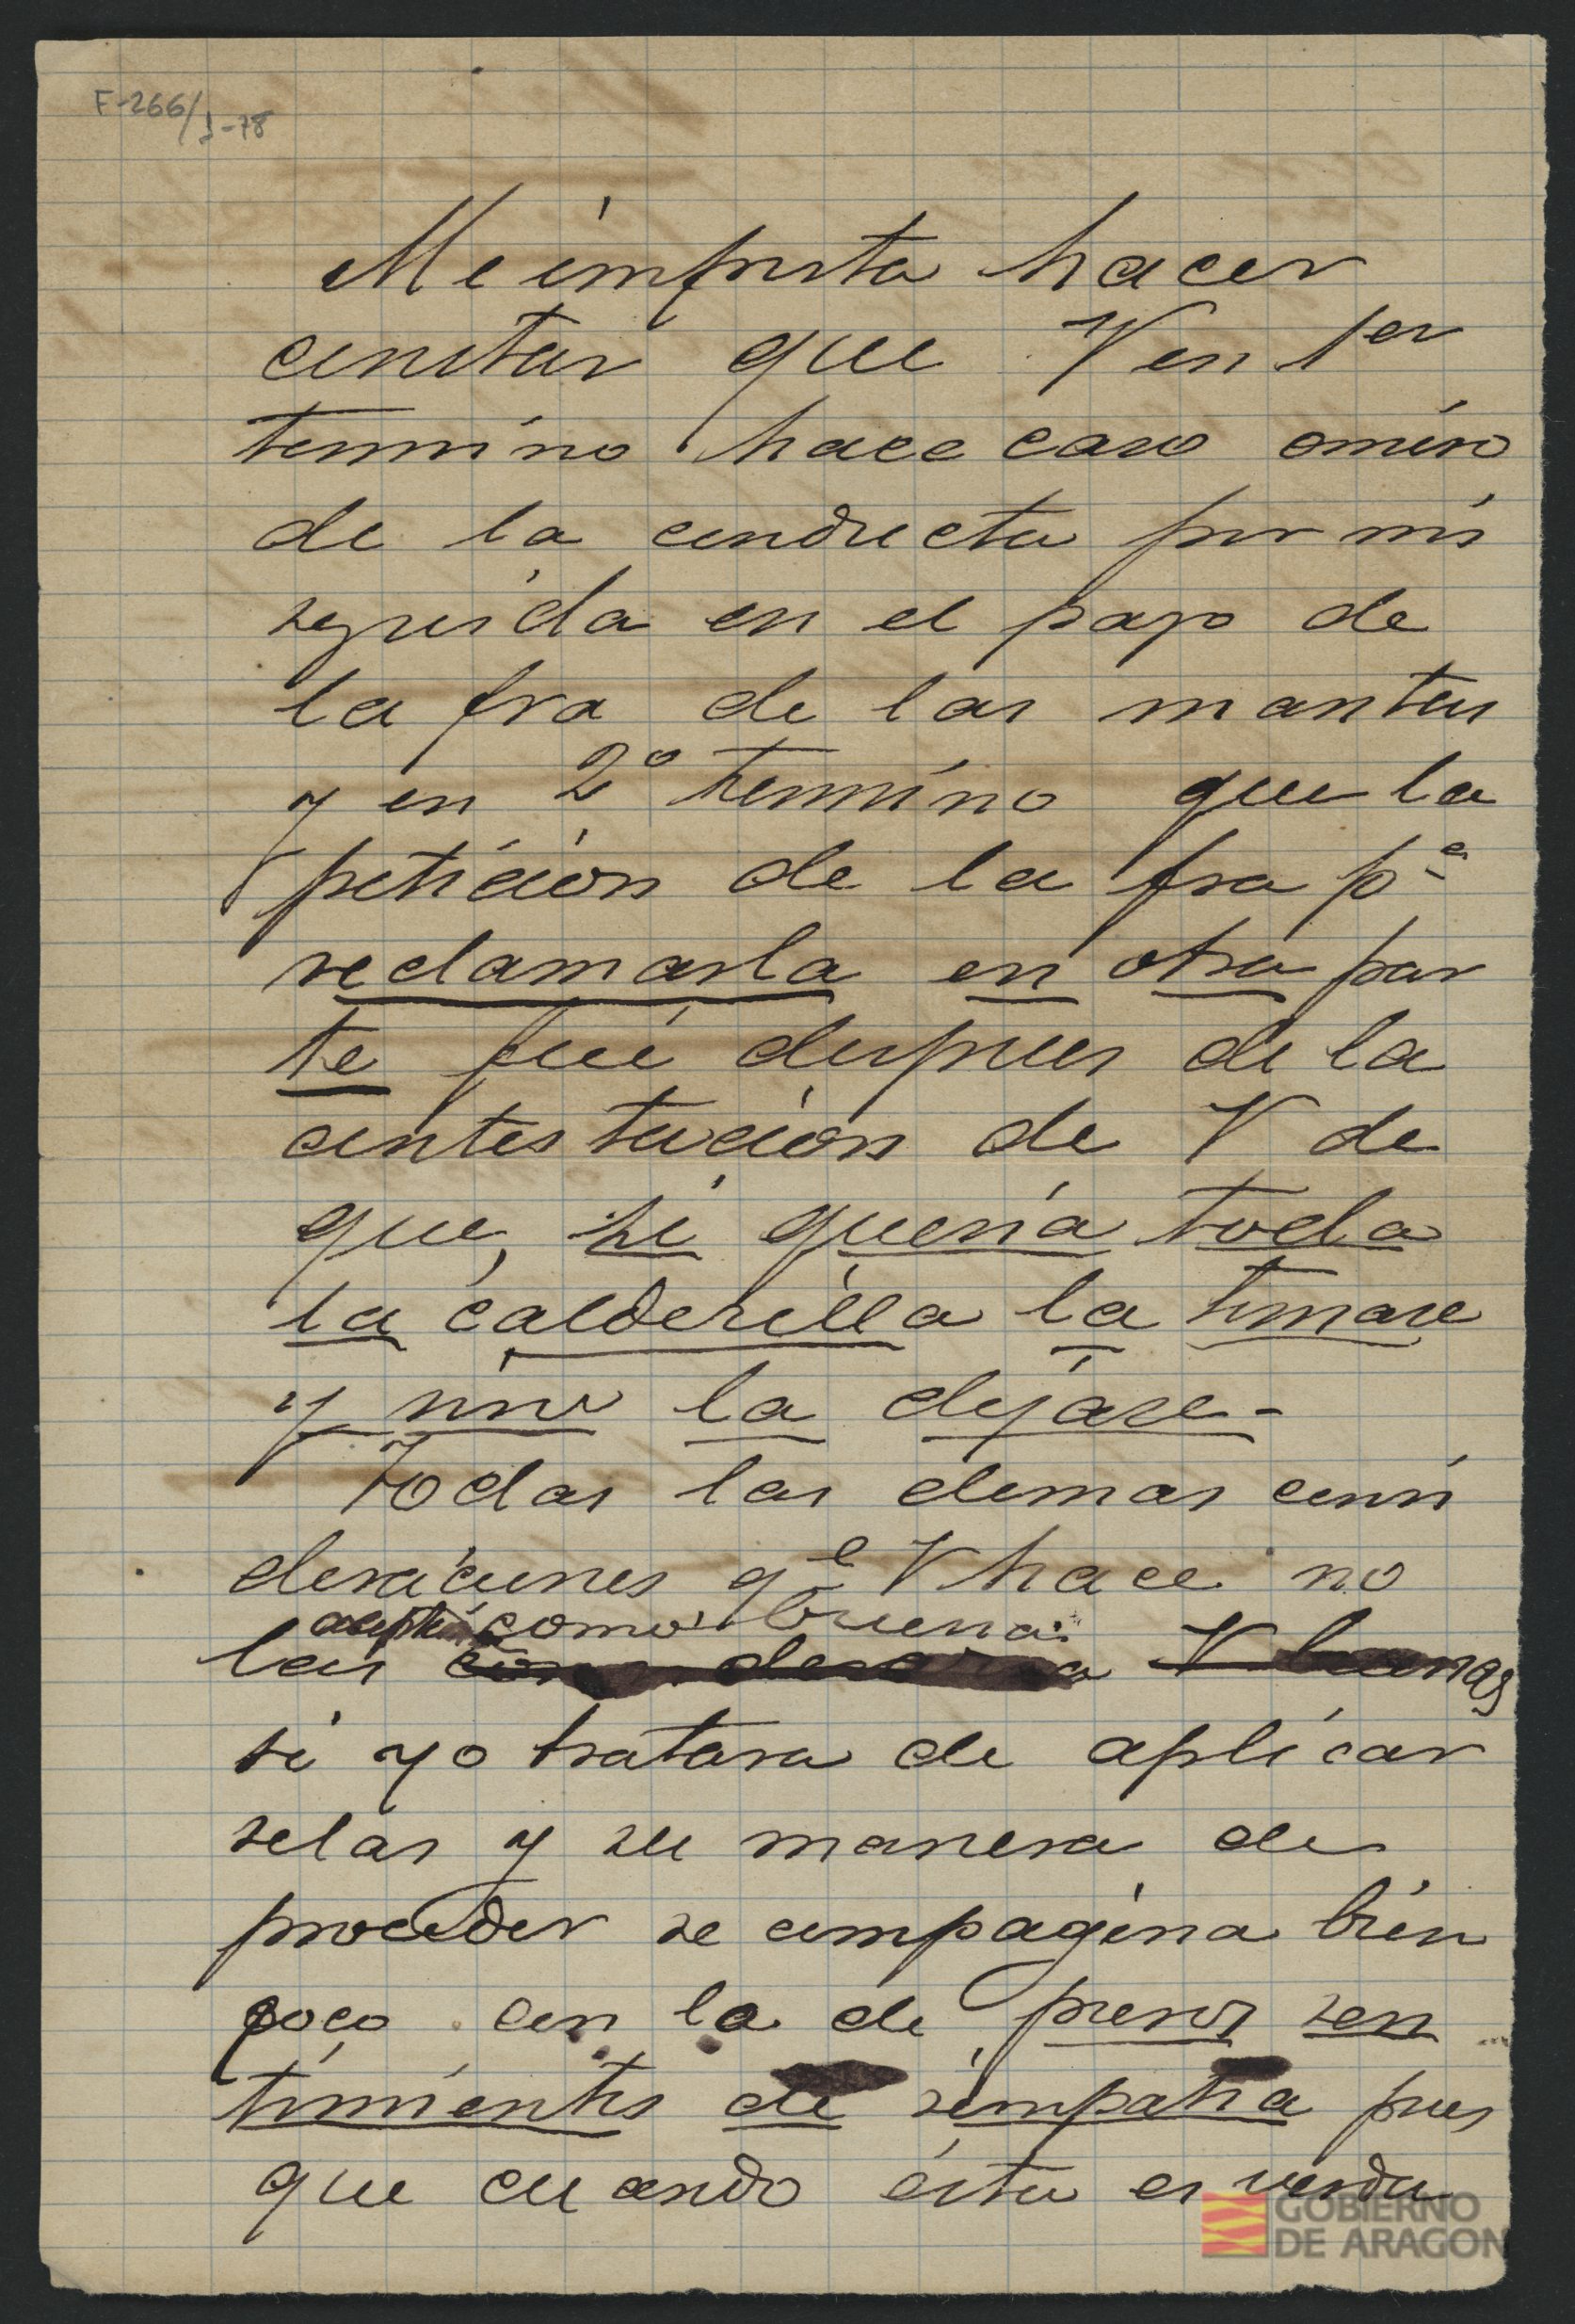 F-266/J-78
Me importa hacer
constar que V en 1er
termino hace caso omiso
de la conducta por mi
seguida en el pago de
la fra de las mantas
y en 2º termino que la
petición de la fra pª
reclamarla en otra par
te fué despues de la
contestación de V de
que, si queria toda
la calderilla la tomase
y sino la dejase-
Todas las demas consi
deraciones qe V hace no
acepte como buenas
las consideraria V buenas
si yo tratara de aplicar
selas y su manera de
proceder se compagina bien
poco con la de puros sen
timientos de simpatia pues
que cuando esta es verda
GOBIERNO
DE ARAGON